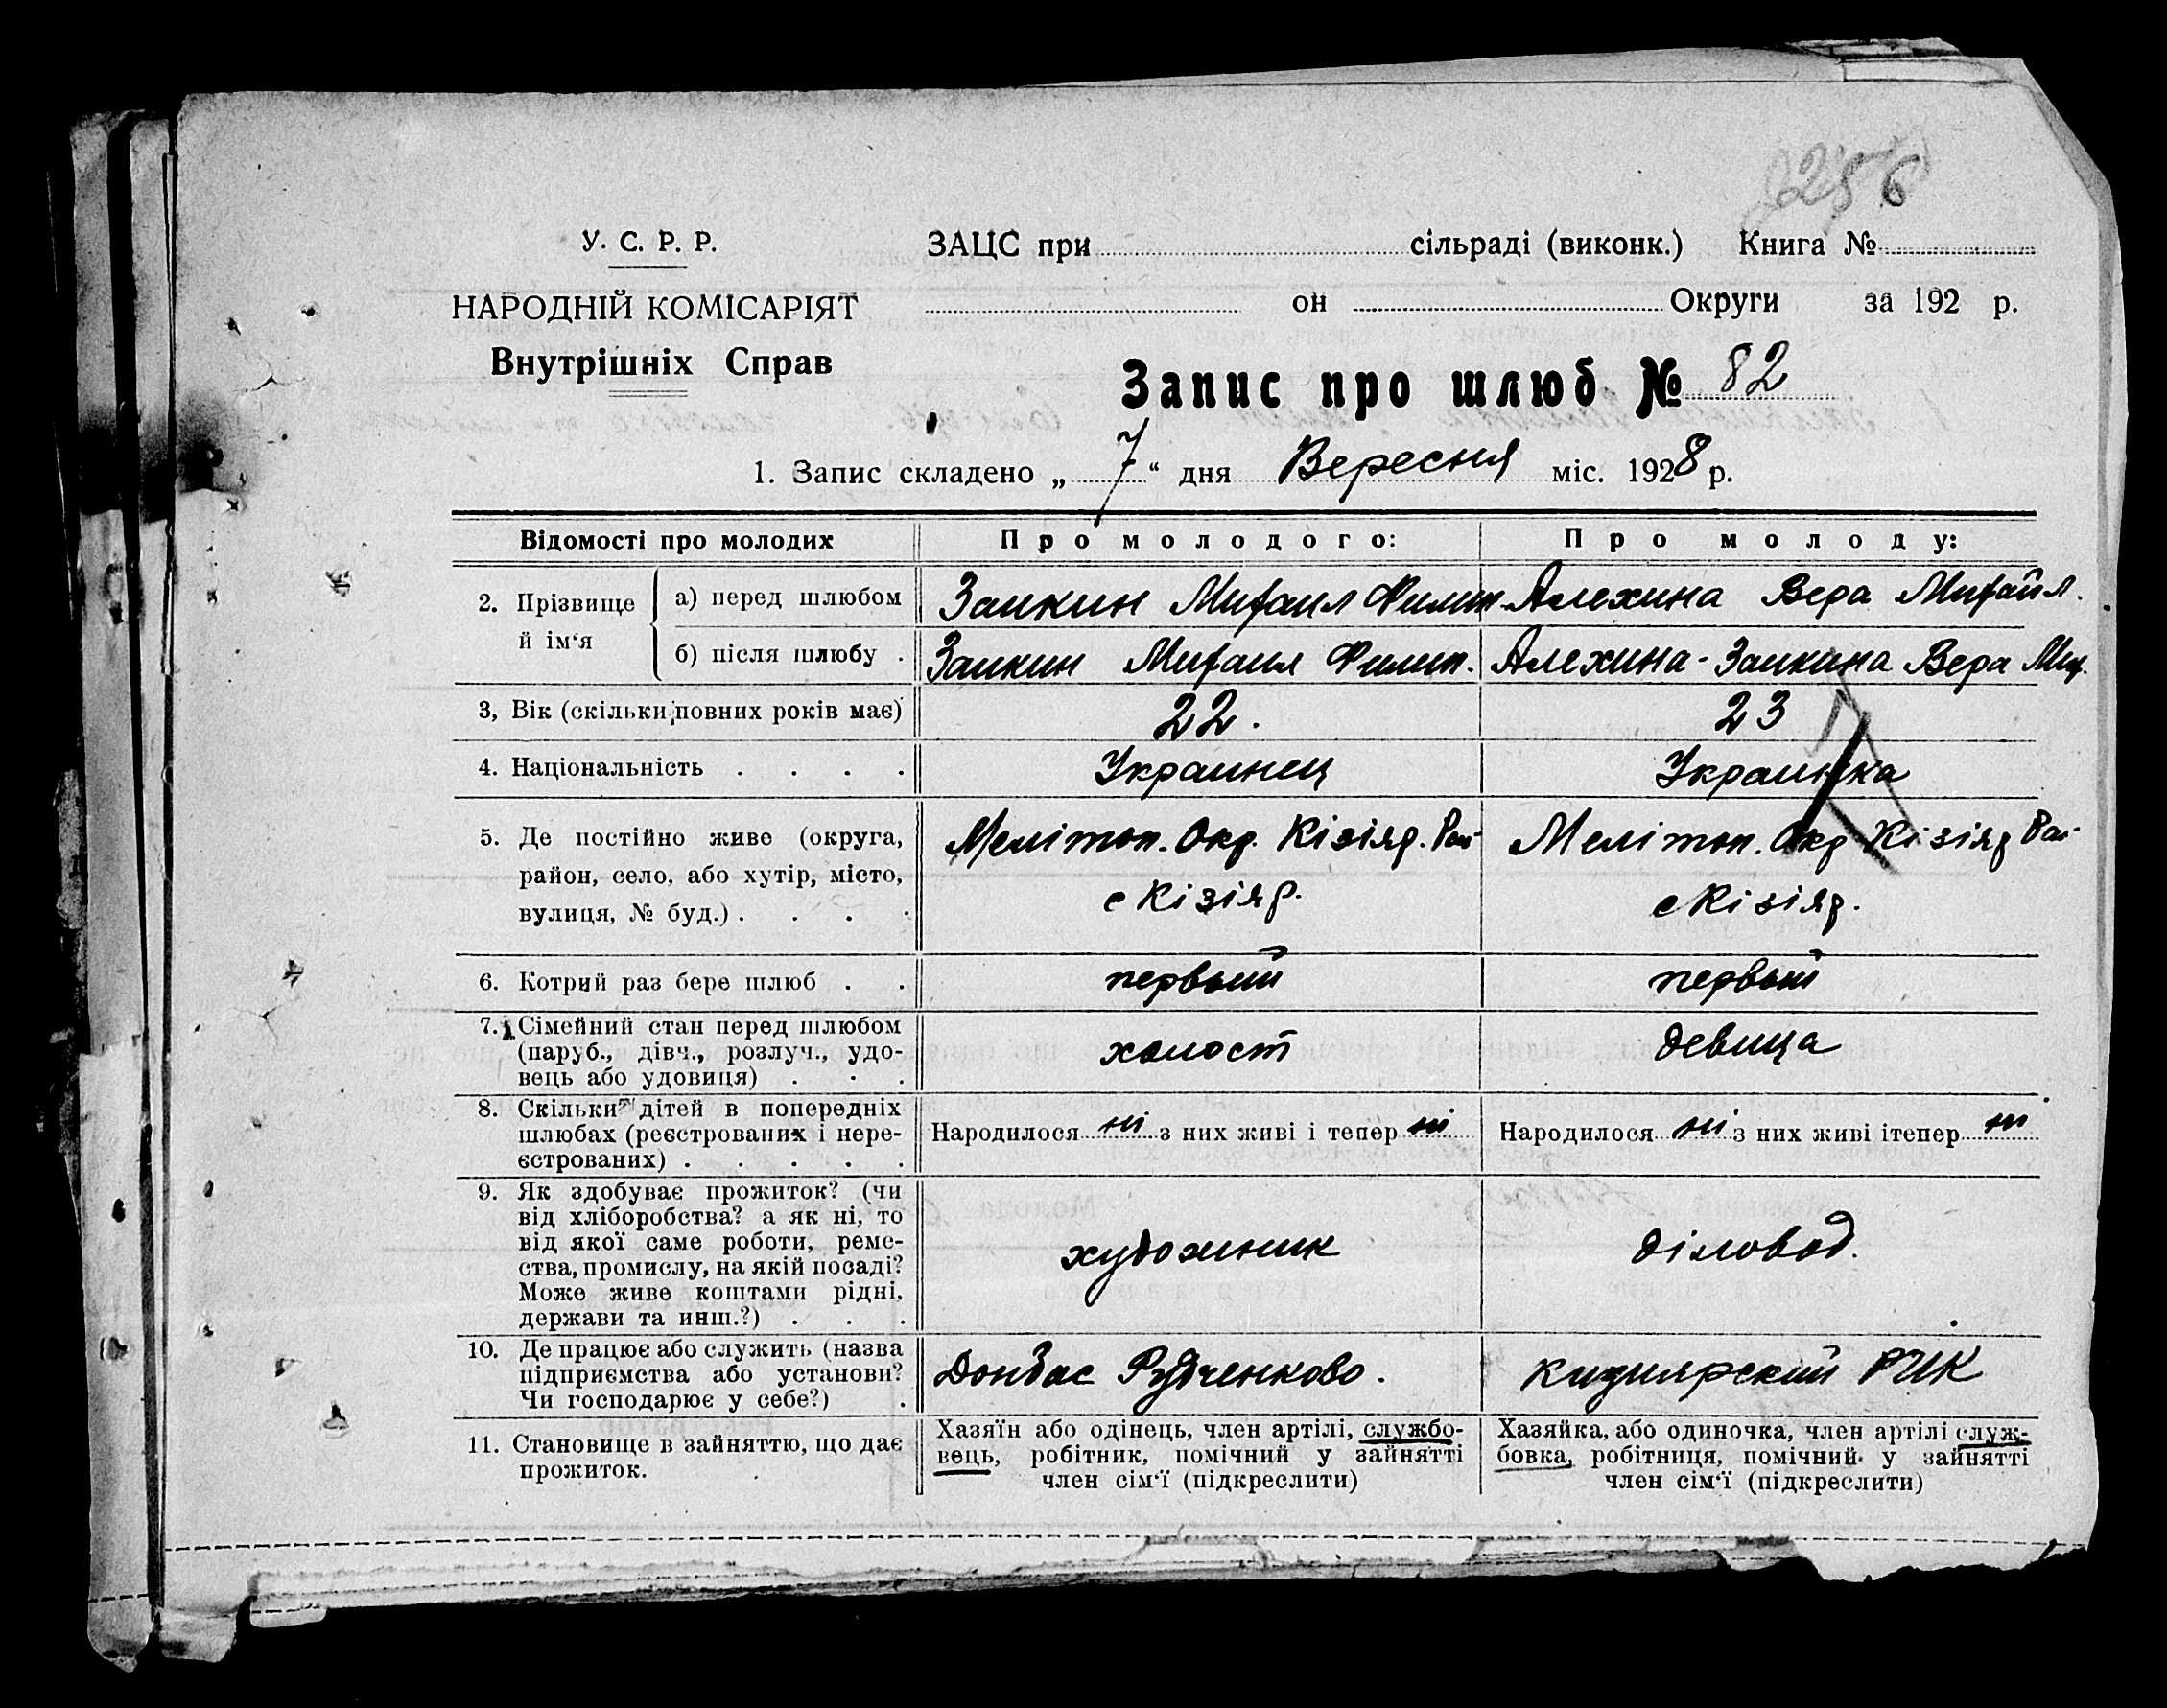 256
У. С. Р. Р.
НАРОДНІЙ КОМІСАРІЯТ
Внутрішніх Справ
ЗАЦС при сільраді (виконк.) Книга №
он Округи за 192 р.
Запис про шлюб № 82
1. Запис складено „ 7 “ дня Вересня міс. 1928 р.
Відомості про молодих
Про молодого:
Про молоду:
2. Прізвище й ім‘я
а) перед шлюбом
Заикин Михаил Филип
Алехина Вера Михайл.
б) після шлюбу .
Заикин Михаил Филип.
Алехина-Заикина Вера Мих.
3, Вік (скільки повних років має)
22.
23
4. Національність . . . .
Украинец
Украинка
5. Де постійно живе (округа,
район, село, або хутір, місто,
вулиця, № буд.) . . . .
Меліtоп. Окр. Кізіяр. Рай-
с Кізіяр.
Меліtоп. Окр Кізіяр Рай-
с Кізіяр.
6. Котрий раз бере шлюб . .
первый
первый
7. Сімейний стан перед шлюбом
(паруб., дівч., розлуч., удо-
вець або удовиця) . . .
холост
девица
8. Скільки дітей в попередніх
шлюбах (реєстрованих і нере-
єстрованих) . . . . .
Народилося ні з них живі і тепер ні
Народилося ні з них живі ітепер ні
9. Як здобуває прожиток? (чи
від хліборобства? а як ні, то
від якої саме роботи, реме-
ства, промислу, на якій посаді?
Може живе коштами рідні,
держави та инш.?) . . .
художник
діловод.
10. Де працює або служить (назва
підприємства або установи?
Чи господарює у себе?) .
Донбас Рутченково.
Кизиярский РИК
11. Становище в зайняттю, що дає
прожиток.
Хазяїн або одінець, член артілі, службо-
вець, робітник, помічний у зайнятті
член сім‘ї (підкреслити)
Хазяйка, або одиночка, член артілі служ-
бовка, робітниця, помічний у зайнятті
член сім‘ї (підкреслити)